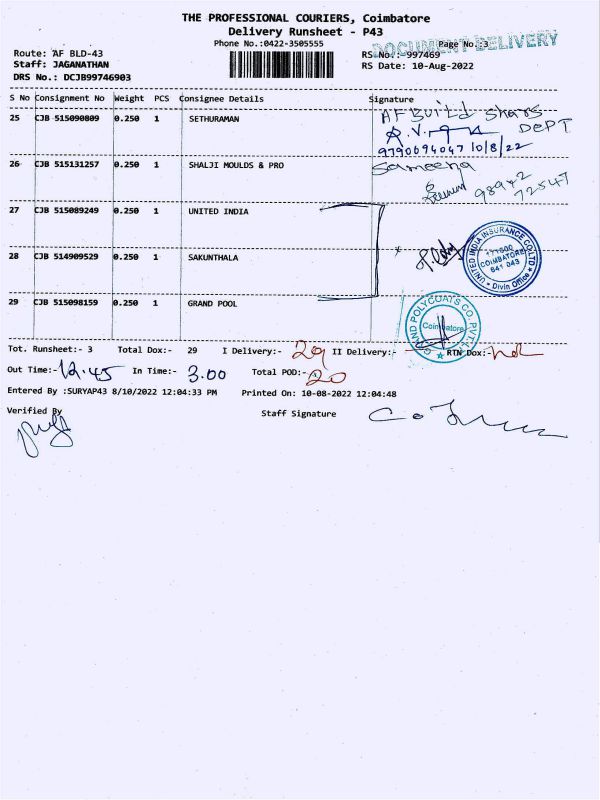 THE PROFESSIONAL COURIERS, Coimbatore
Delivery Runsheet - P43
Phone No.:0422-3505555
Page No.:3
DOCUMENT DELIVERY
Route: AF BLD-43
RS No.: -997469
Staff: JAGANATHAN
RS Date: 10-Aug-2022
DRS No.: DCJB99746903
S No Consignment No Weight PCS Consignee Details Signature
25 CJB 515090809 0.250 1 SETHURAMAN
AF Build shars
DePT
9790694047 10/8/22
26 CJB 515131257 0.250 1 SHALJI MOULDS & PRO
Sameena
98942
72547
27 CJB 515089249 0.250 1 UNITED INDIA
28 CJB 514909529 0.250 1 SAKUNTHALA
UNITED INDIA INSURANCE CO LTD
171600
COIMBATORE
641 043
Divin Office
29 CJB 515098159 0.250 1 GRAND POOL
GRAND POLYCOATS CO. PVT. LTD.
Coimbatore
Tot. Runsheet:- 3 Total Dox:- 29 I Delivery:- 29 II Delivery:- RTN Dox:- nd
Out Time:- 12.45 In Time:- 3.00 Total POD:- 20
Entered By :SURYAP43 8/10/2022 12:04:33 PM Printed On: 10-08-2022 12:04:48
Verified By Staff Signature